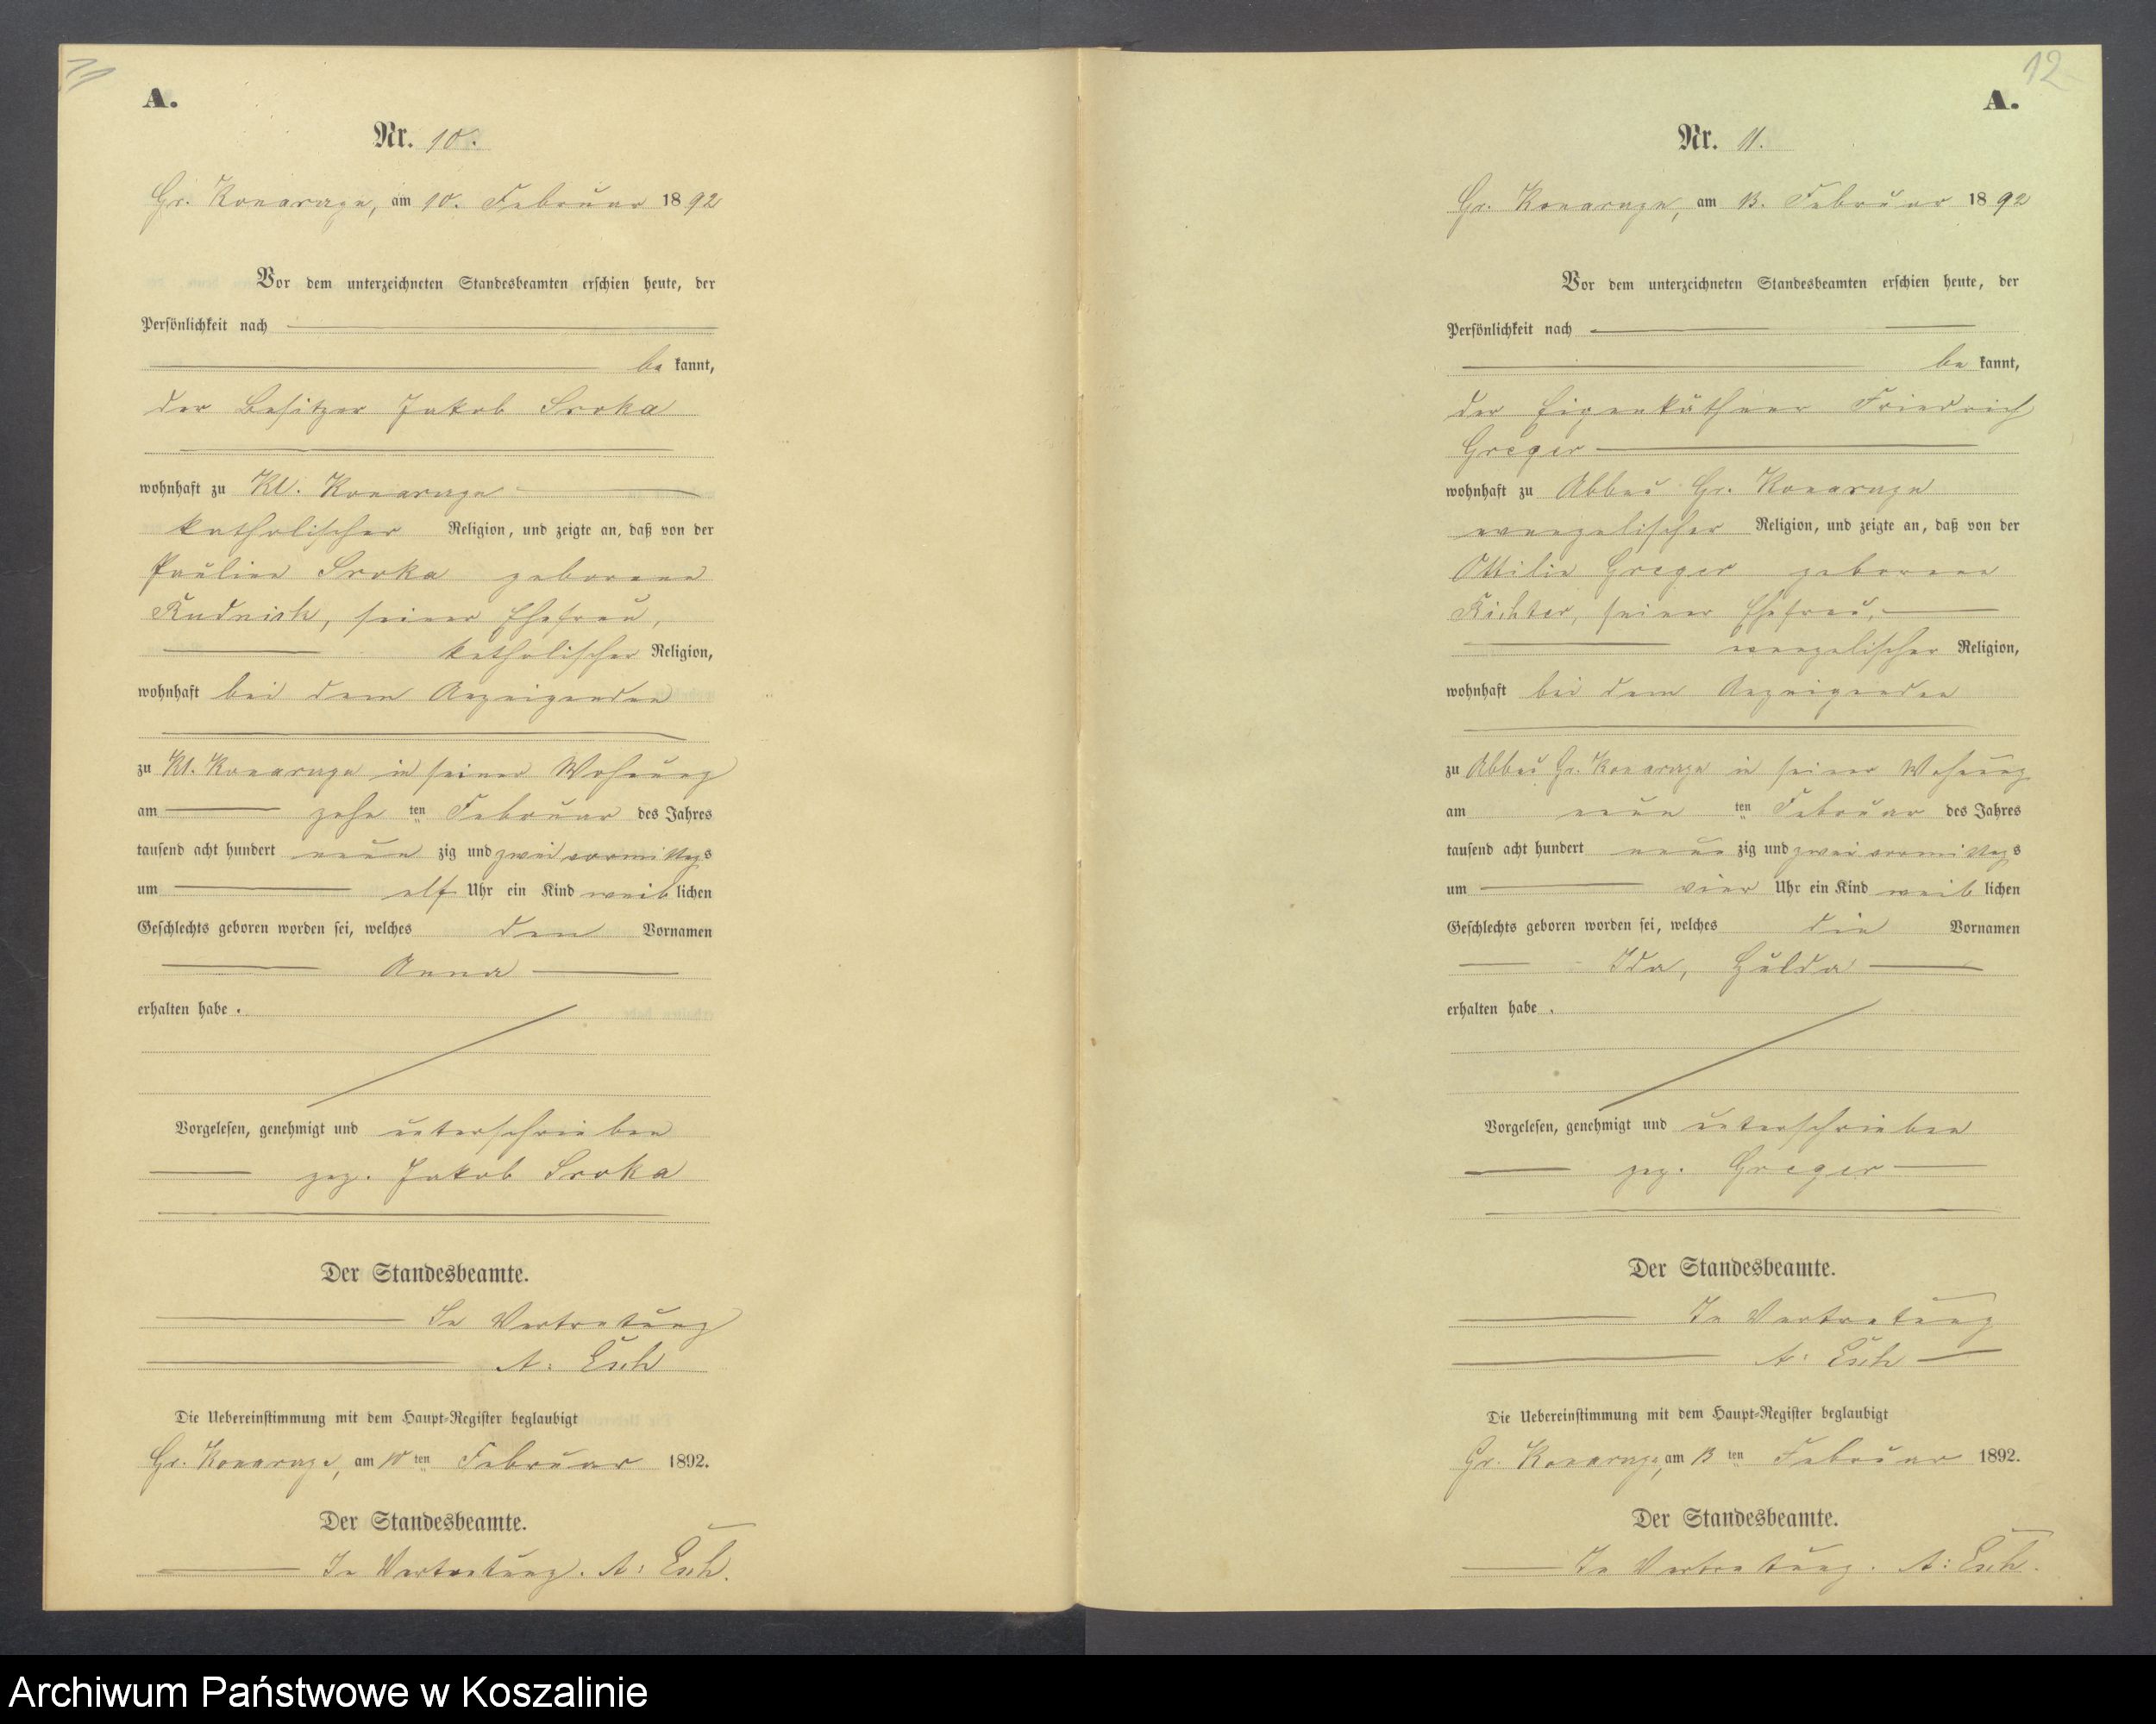 11
A.
Nr. 10.
Gr. Konarczyn, am 10. Februar 1892
Vor dem unterzeichneten Standesbeamten erschien heute, der
Persönlichkeit nach
be kannt,
der Besitzer Jakob Sroka
wohnhaft zu Kl. Konarczyn
katholischer Religion, und zeigte an, daß von der
Pauline Sroka geborene
Rudnick, seiner Ehefrau,
katholischer Religion,
wohnhaft bei dem Anzeigenden
zu Kl. Konarczyn in seiner Wohnung
am zehn ten Februar des Jahres
tausend acht hundert neun zig und zwei vormittags
um elf Uhr ein Kind weib lichen
Geschlechts geboren worden sei, welches den Vornamen
Anna
erhalten habe .
Vorgelesen, genehmigt und unterschrieben
gez. Jakob Sroka
Der Standesbeamte.
In Vertretung
A: Esch
Die Uebereinstimmung mit dem Haupt-Register beglaubigt
Gr. Konarczyn, am 10 ten Februar 1892.
Der Standesbeamte.
In Vertretung. A: Esch.
12
A.
Nr. 11.
Gr. Konarczyn, am 13. Februar 1892
Vor dem unterzeichneten Standesbeamten erschien heute, der
Persönlichkeit nach
be kannt,
der Eigenkäthner Friedrich
Greger
wohnhaft zu Abbau Gr. Konarczyn
evangelischer Religion, und zeigte an, daß von der
Ottilie Greger geborene
Richter, seiner Ehefrau,
evangelischer Religion,
wohnhaft bei dem Anzeigenden
zu Abbau Gr. Konarczyn in seiner Wohnung
am neun ten Februar des Jahres
tausend acht hundert neun zig und zwei vormittags
um vier Uhr ein Kind weib lichen
Geschlechts geboren worden sei, welches die Vornamen
Ida, Hulda
erhalten habe .
Vorgelesen, genehmigt und unterschrieben
gez. Greger
Der Standesbeamte.
In Vertretung
A: Esch
Die Uebereinstimmung mit dem Haupt-Register beglaubigt
Gr. Konarczyn, am 13 ten Februar 1892.
Der Standesbeamte.
In Vertretung. A: Esch.
Archiwum Państwowe w Koszalinie